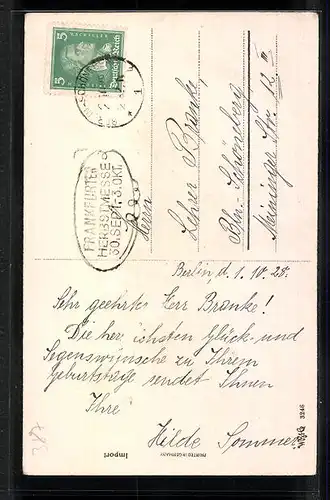 5 Deutsches Reich 5
FRANKFURTER
HERBSTMESSE
30.SEPT.-3.OKT.
Herrn
Lehrer Branke
Bln.-Schöneberg
Meininger Str. 12 III
Berlin, d. 1. 10. 28.
Sehr geehrter Herr Branke!
Die herzlichsten Glück- und
Segenswünsche zu Ihrem
Geburtstage sendet Ihnen
Ihre
Hilde Sommer
387
Import
PRINTED IN GERMANY
3246